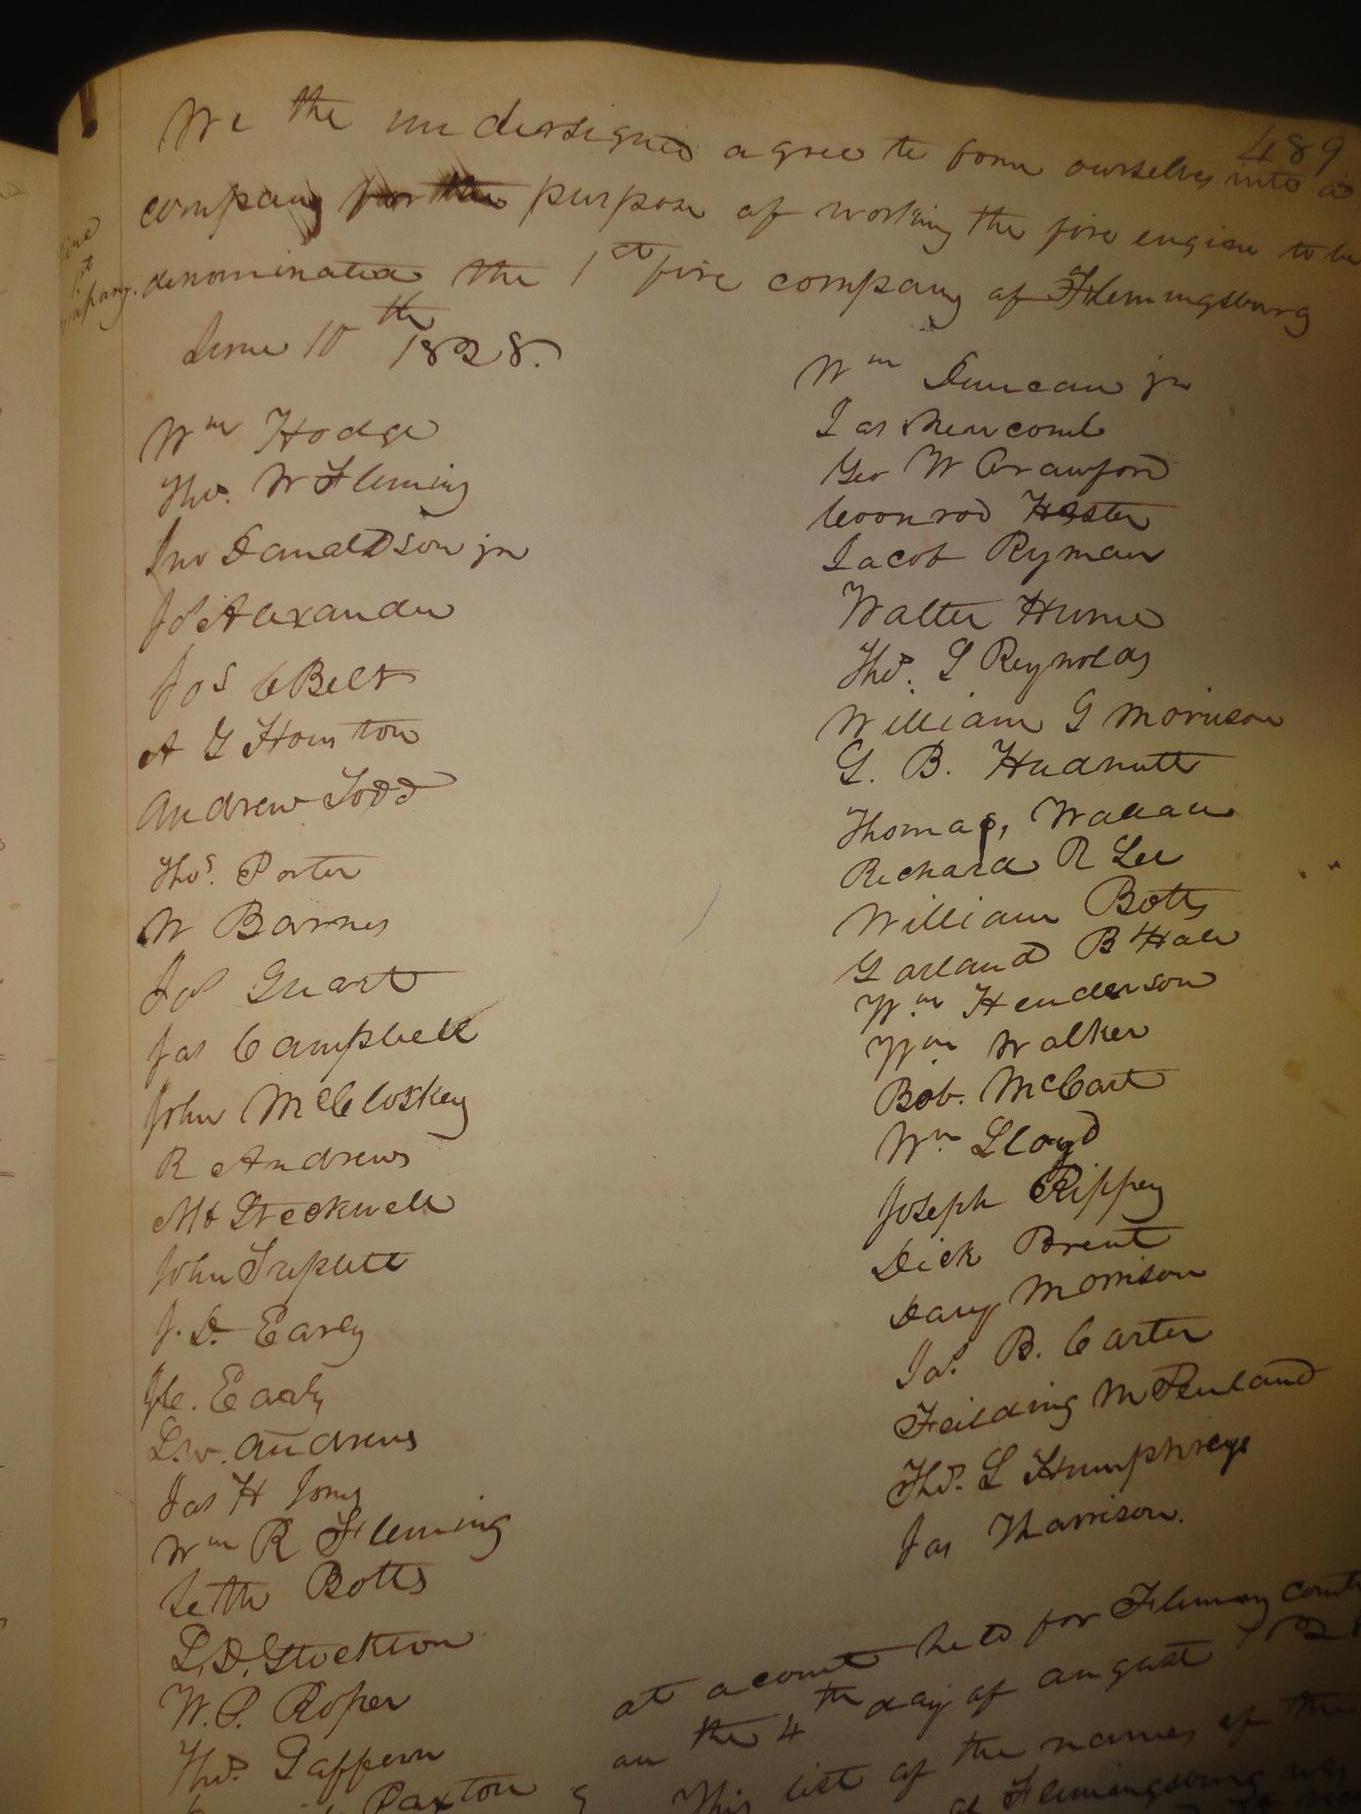 489
We the undersigned agree to form ourselves into a
company for the purpose of working the fire engine to be
denominated the 1st fire company of Flemingsburg
June 10th 1828.
Wm Hodge
Thos. W Fleming
Jno Danaldson jr
Jos Alexander
Jos C Belt
A G Houston
Andrew Todd
Thos. Porter
W Barnes
Jas Campbell
John McCloskey
R Andrews
John Triplett
J. D. Early
L. W. Andrews
Jas H Jones
Wm R Fleming
Seth Botts
L. D. Stockton
W. P. Roper
Thos.
Paxton
Wm Duncan jr
Jas Newcomb
Geo W Crawford
Coonrod Hester
Jacob Ryman
Walter Hume
Thos. L Reynolds
William G Morrison
G. B. Hudnutt
Thomas, Wallace
Richard R Lee
William Botts
Garland B Hale
Wm Henderson
Wm Walker
Bob. McCart
Wm Lloyd
Joseph Rippey
Dick Brent
Morrison
Jas. B. Carter
Feilding
Thos. L Humphreys
Jas Harrison.
at a court held for Fleming county
on the 4th day of august
This list of the names of the
of Flemingsburg was